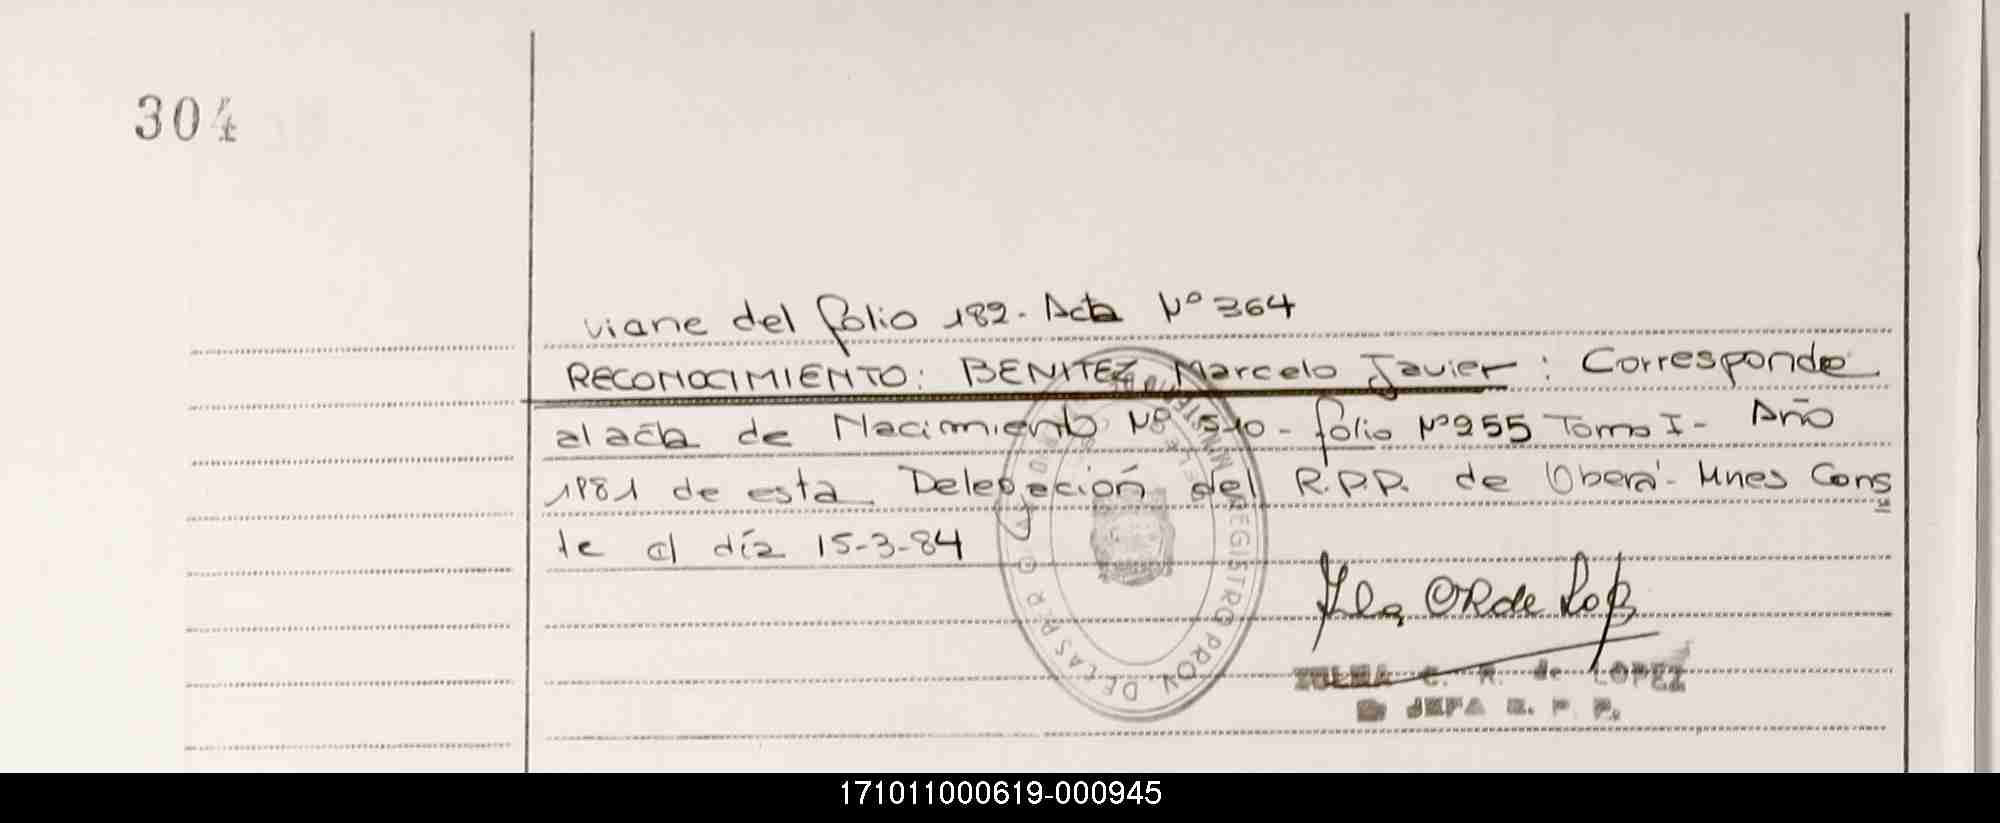 304
viene del folio 182. Acta Nº 364
RECONOCIMIENTO: BENITEZ Marcelo Javier: Corresponde
al acta de Nacimiento Nº 510 - folio Nº 255 Tomo I - Año
1981 de esta Delegación del R.P.P. de Oberá - Mnes Cons
te el día 15-3-84
REGISTRO PROV. DE LAS PER
ZULMA C. R. de LOPEZ
JEFA R. P. P.
171011000619-000945